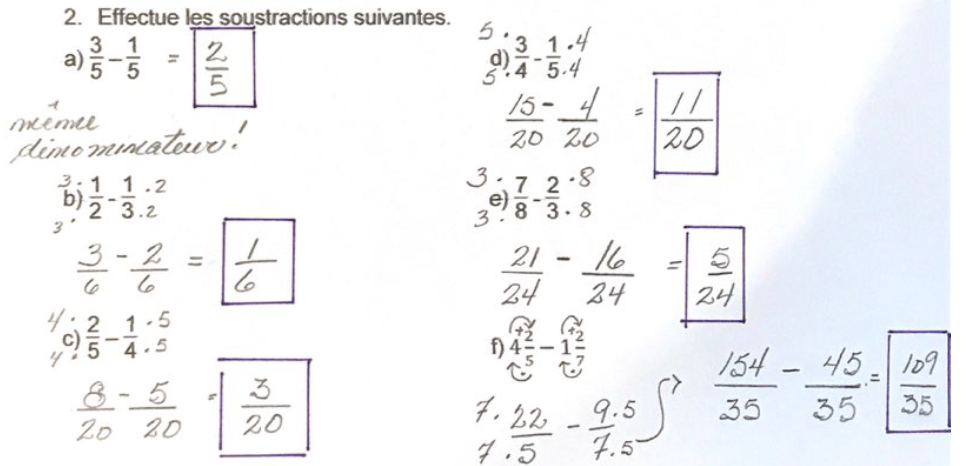 2. Effectue les soustractions suivantes.
a) 3/5 - 1/5 = 2/5
même
dénominateur!
b) 3 · 1/3 · 2 - 1 · 2/3 · 2
3/6 - 2/6 = 1/6
c) 4 · 2/4 · 5 - 1 · 5/4 · 5
8/20 - 5/20 = 3/20
d) 5 · 3/5 · 4 - 1 · 4/5 · 4
15/20 - 4/20 = 11/20
e) 3 · 7/3 · 8 - 2 · 8/3 · 8
21/24 - 16/24 = 5/24
f) 4 + 2/5 - 1 + 2/7
7 · 22/7 · 5 - 9 · 5/7 · 5
154/35 - 45/35 = 109/35